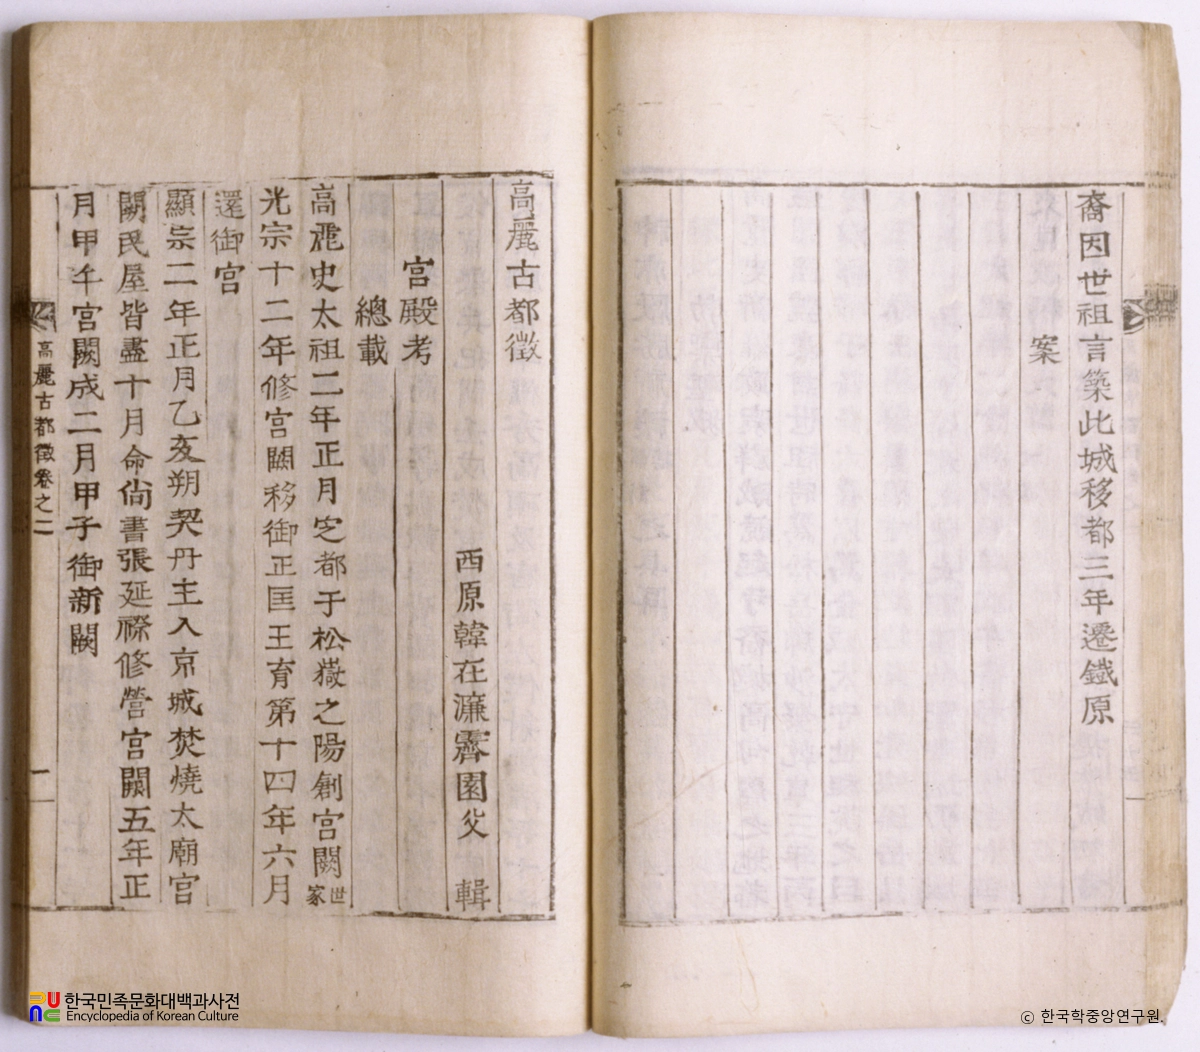 裔因世祖言築此城移都三年遷鐵原
案
高麗古都徵
西原韓在濂霽園父 輯
宮殿考
總載
高麗史太祖二年正月定都于松嶽之陽創宮闕世家
光宗十二年修宮闕移御正匡王育第十四年六月
還御宮
顯宗二年正月乙亥朔契丹主入京城焚燒太廟宮
闕民屋皆盡十月命尙書張延祿修營宮闕五年正
月甲午宮闕成二月甲子御新闕
高麗古都徵卷之二
一
한국민족문화대백과사전
Encyclopedia of Korean Culture
ⓒ 한국학중앙연구원.